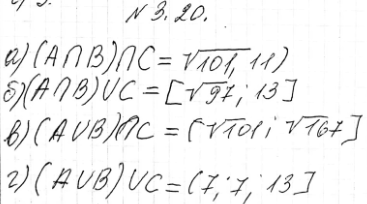 N 3.20.
а) (A∩B)∩C = √101, 11)
б) (A∩B)∪C = [√97; 13]
в) (A∪B)∩C = (√101; √167]
г) (A∪B)∪C = (7,7; 13]